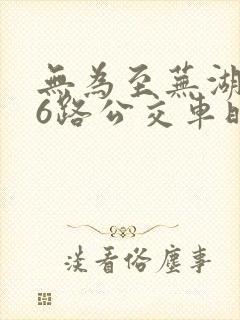 無為至蕪湖
6路公交車
淡看俗塵事